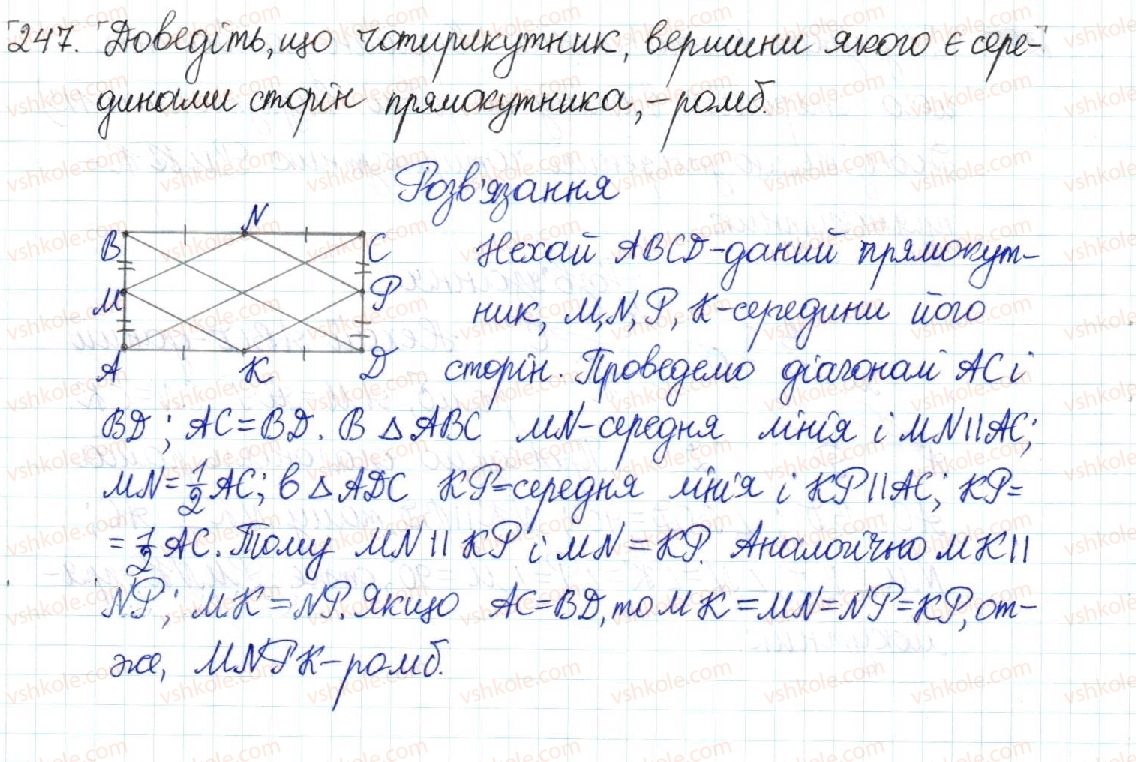 247. Доведіть, що чотирикутник, вершини якого є сере-
динами сторін прямокутника, – ромб.
Розв'язання
N
B
C
M
P
A
K
D
Нехай ABCD-даний прямокут-
ник, M, N, P, K-середини його
сторін. Проведемо діагоналі AC і
BD; AC=BD. В △ABC MN-середня лінія і MN||AC;
MN=1/2 AC; в △ADC KP-середня лінія і KP||AC; KP=
=1/2 AC. Тому MN || KP і MN=KP. Аналогічно MK||
NP; MK=NP. Якщо AC=BD, то MK=MN=NP=KP, от-
же, MNPK-ромб.